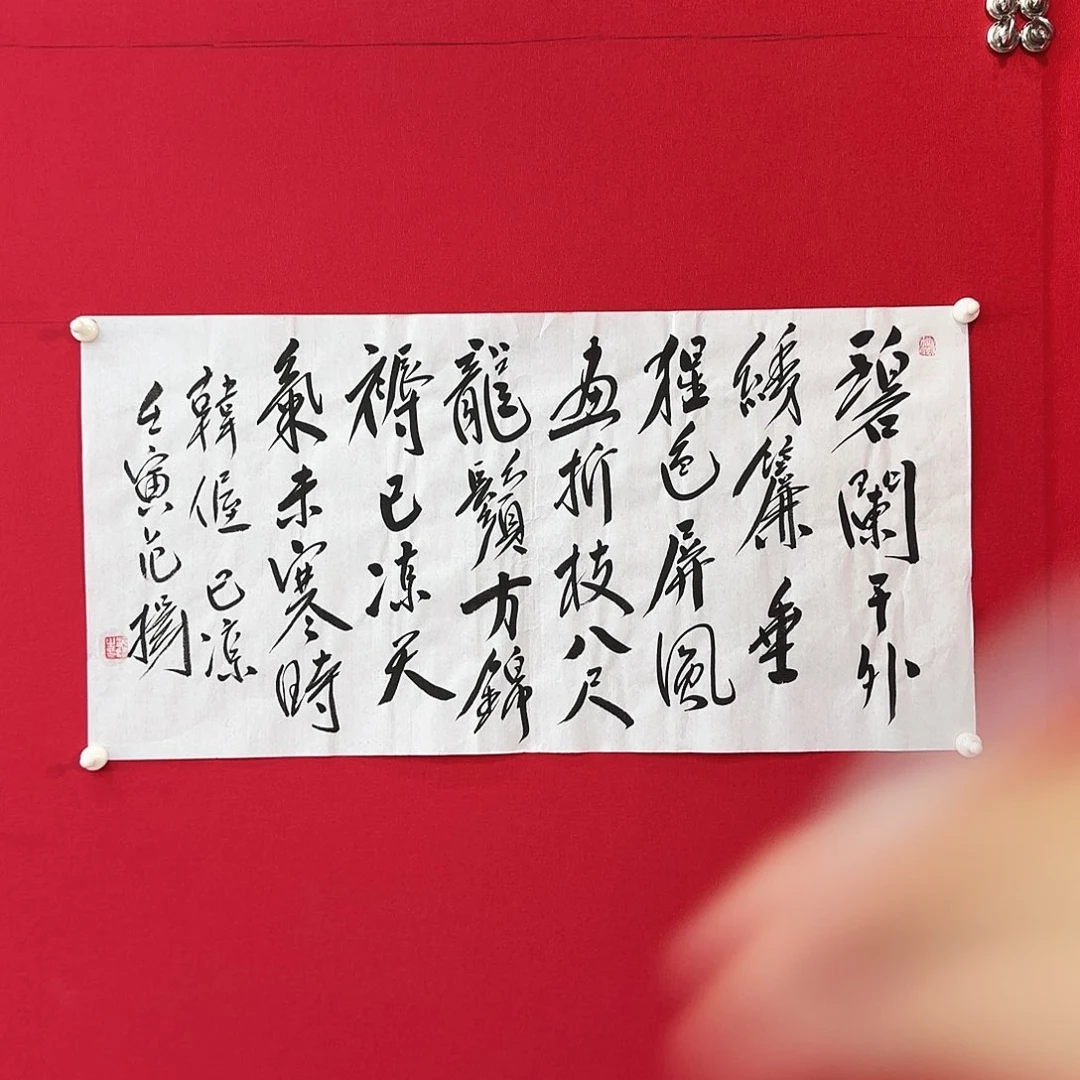 碧闌干外
綉簾垂
猩色屏風
画折枝八尺
龍鬚方錦
褥已凉天
氣未寒時
韓偓已凉
壬寅范